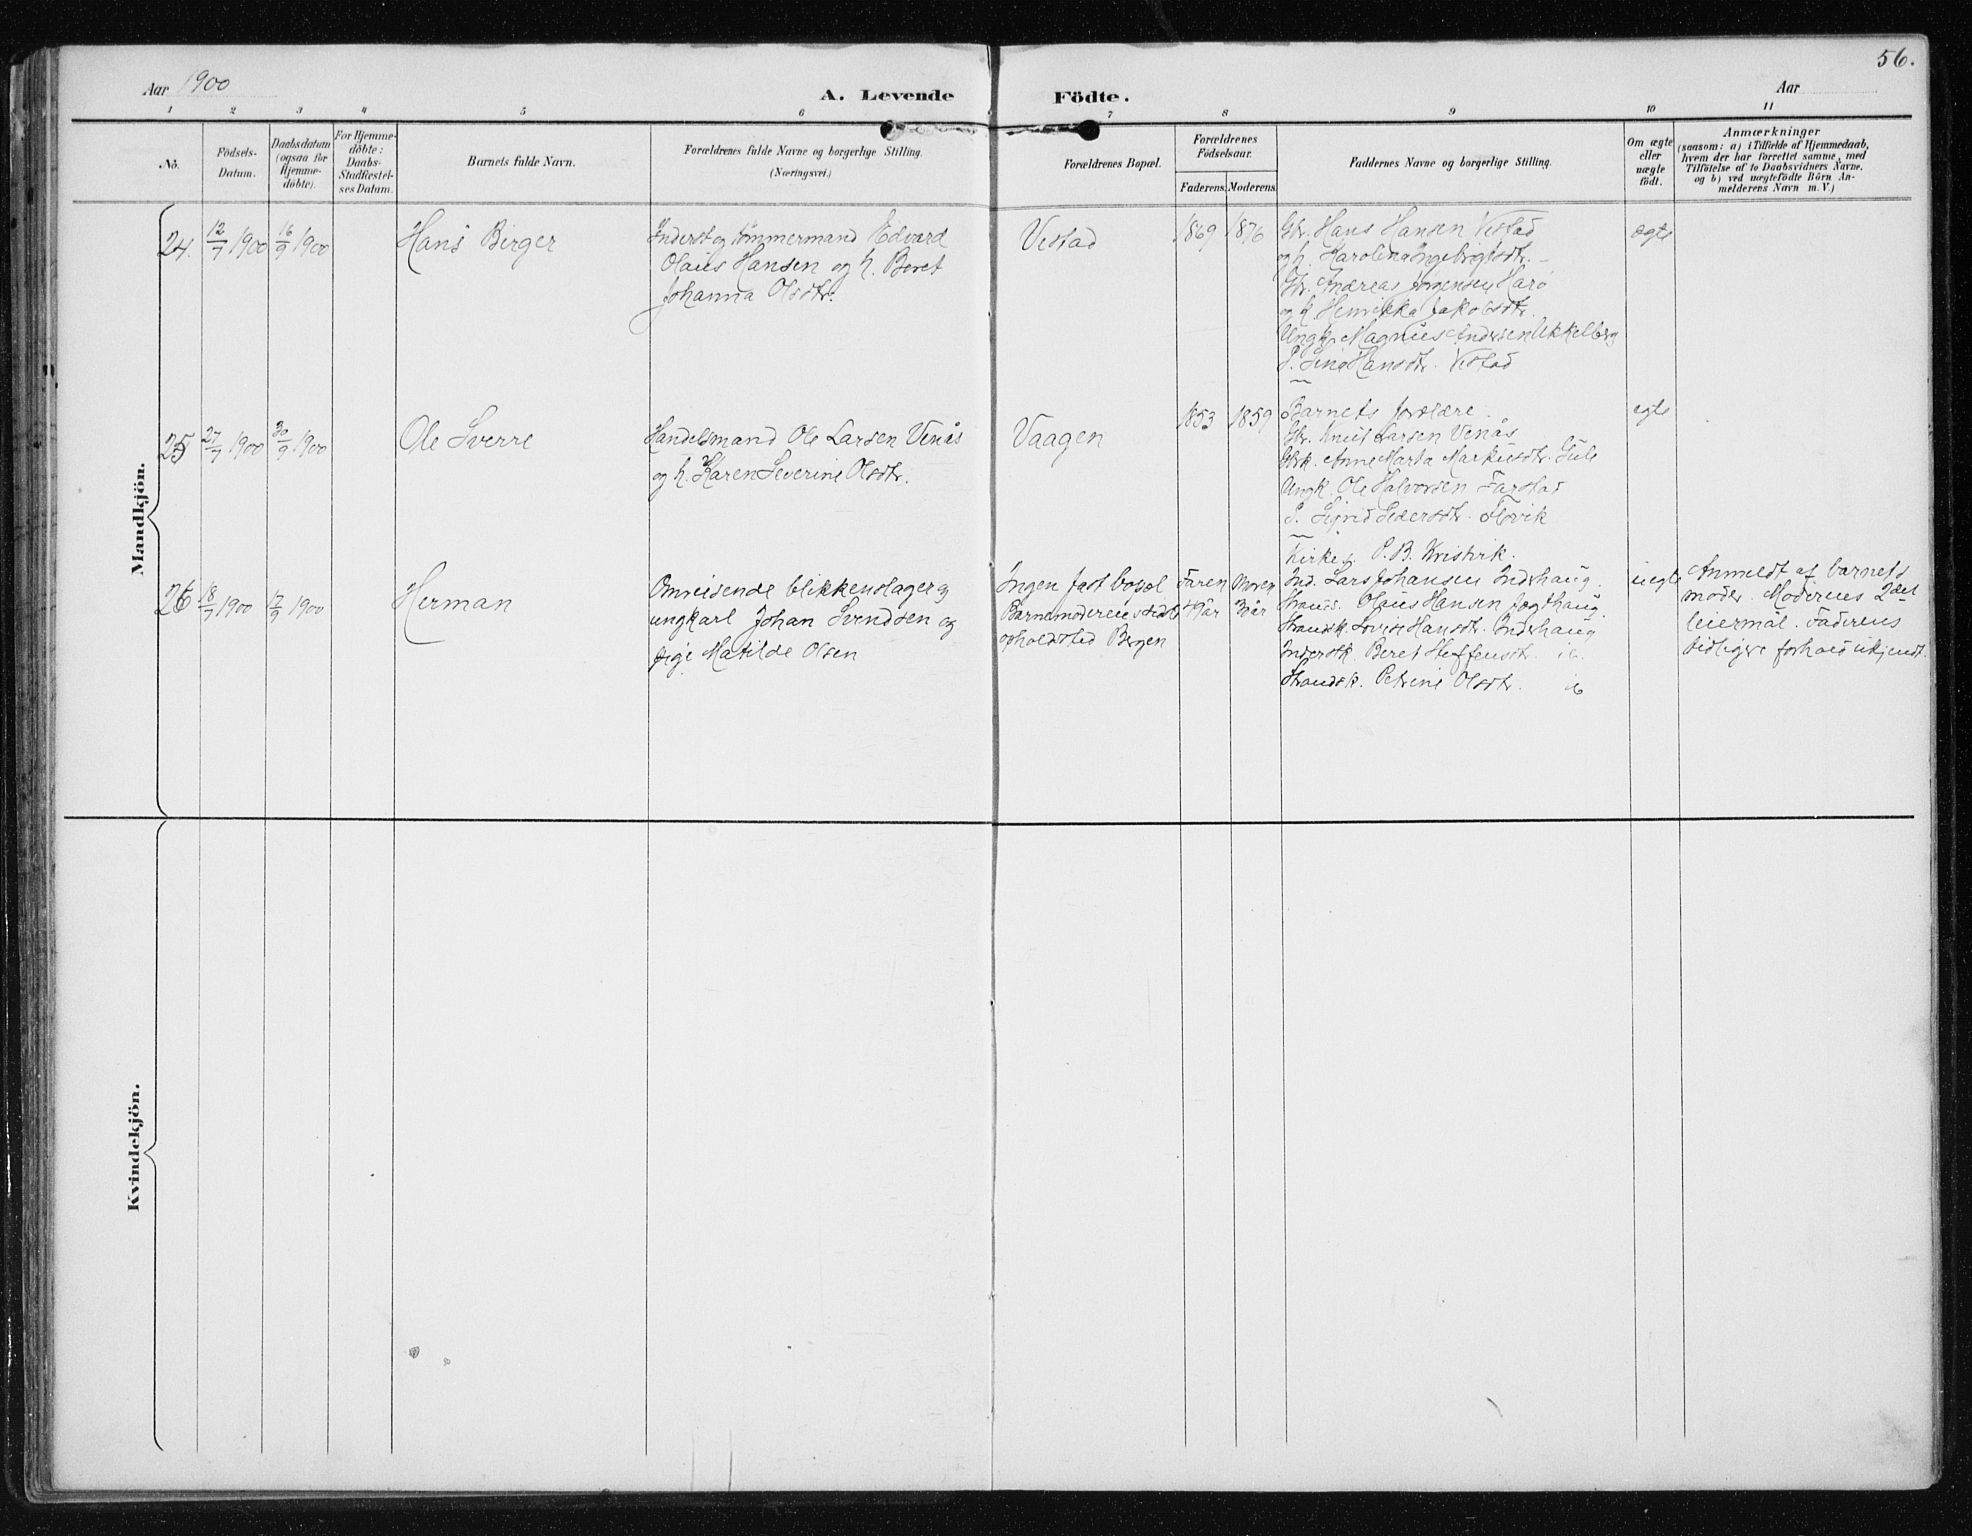 56.
Aar 1900
A. Levende
Födte.
Aar
1 2 3 4 5 6 7 8 9 10 11
No.
Födsels-
Datum.
Daabsdatum
(ogsaa for
Hjemme-
döbte).
For Hjemme-
döbte:
Daabs-
Stadfæstel-
ses Datum.
Barnets fulde Navn.
Forældrenes fulde Navne og borgerlige Stilling.
(Næringsvei.)
Forældrenes Bopæl.
Forældrenes
Födselsaar.
Faderens. Moderens.
Faddernes Navne og borgerlige Stilling.
Om ægte
eller
uægte
födt.
Anmærkninger
(saasom: a) i Tilfælde af Hjemmedaab,
hvem der har forrettet samme, med
Tilföielse af to Daabsvidners Navne,
og b) ved uægtefödte Börn An-
melderens Navn m. V.)
Mandkjön.
24. 12/7 1900 16/9 1900
Hans Birger
Inderst og tömmermand Edvard
Olaus Hansen og h. Beret
Johanna Olsdtr.
Vestad
1869 1876
Gbr. Hans Hansen Vestad
og h. Karolina Ingebrigtsdtr. –
Gbr. Andreas Jørgensen Harö
og h. Henrikka Jakobsdtr.
Ungk. Magnus Andersen Ukkelberg
P. Lina Hansdtr. Vestad
ægte
25 27/7 1900 30/9 1900
Ole Sverre
Handelsmand Ole Larsen Venås
og h. Karen Severine Olsdtr.
Vaagen
1853 1859
Barnets forældre.
Gbr. Knut Larsen Venås
Gbrk. Anne Marta Markusdtr. Gule
Ungk. Ole Halvorsen Farstad
P. Sigrid Pedersdtr. Flovik
egte
26 18/7 1900 17/9 1900
Herman
Omreisende blikkenslager og
ungkarl Johan Svendsen og
pige Matilde Olsen
Ingen fast bopæl
Barnemoderens sidste
opholdsted Bergen
Faren 49 år
Moren 3 år
Kirkes. P. B. Kristvik.
Ind. Lars Johansen Inderhaug.
Strands. Olaus Hansen Jægthaug.
Strandsk. Lovise Hansdtr. Inderhaug
Indersk. Beret Steffensdtr. ib.
Strandsk. Petrine Olsdtr. ib
uegte
Anmeldt af barnets
moder. Moderens 2det
leiermål. Faderens
tidligere forhold ukjendt.
Kvindekjön.